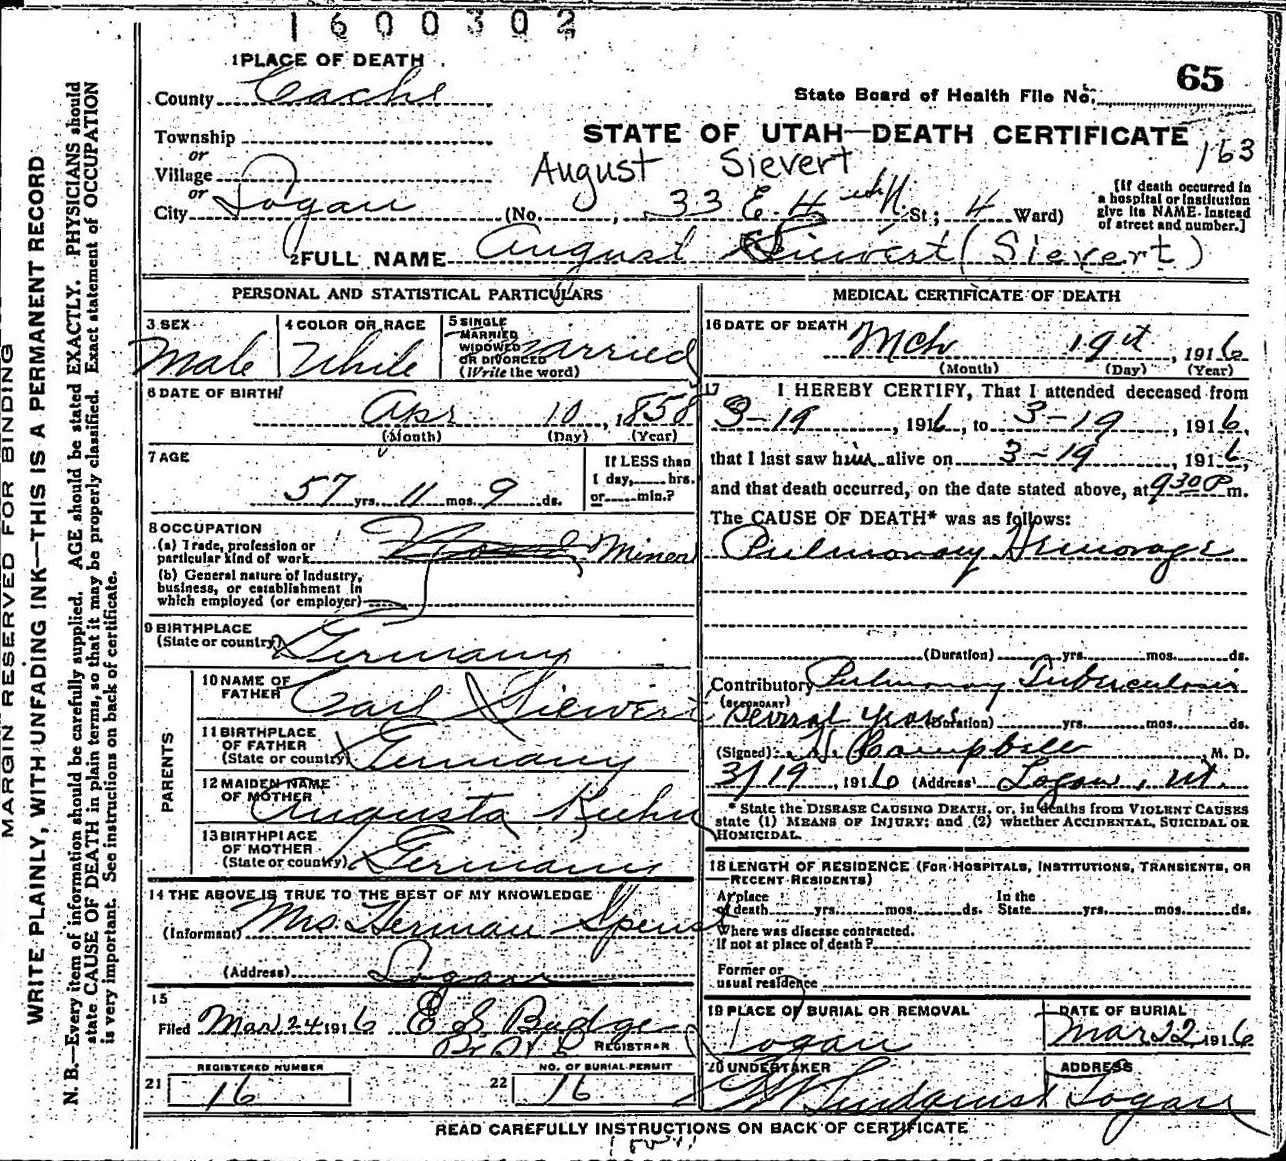 1600302
1 PLACE OF DEATH
65
County Cache
State Board of Health File No.
Township
STATE OF UTAH—DEATH CERTIFICATE
163
or
Village
August Sievert
or
City Logan (No. 33 E 4th N. St; 4 Ward)
[If death occurred in
a hospital or institution
give its NAME instead
of street and number.]
2 FULL NAME August Siewert (Sievert)
MARGIN RESERVED FOR BINDING
WRITE PLAINLY, WITH UNFADING INK—THIS IS A PERMANENT RECORD
N. B.—Every item of information should be carefully supplied. AGE should be stated EXACTLY. PHYSICIANS should
state CAUSE OF DEATH in plain terms, so that it may be properly classified. Exact statement of OCCUPATION
is very important. See instructions on back of certificate.
PERSONAL AND STATISTICAL PARTICULARS
3 SEX
Male
4 COLOR OR RACE
White
5 SINGLE
MARRIED
WIDOWED
OR DIVORCED
(Write the word)
Married
6 DATE OF BIRTH
Apr 10, 1858
(Month) (Day) (Year)
7 AGE
57 yrs. 11 mos. 9 ds.
If LESS than
1 day, hrs.
or min.?
8 OCCUPATION
(a) Trade, profession or
particular kind of work Miner
(b) General nature of Industry,
business, or establishment in
which employed (or employer)
9 BIRTHPLACE
(State or country) Germany
PARENTS
10 NAME OF
FATHER Carl Siewert
11 BIRTHPLACE
OF FATHER
(State or country) Germany
12 MAIDEN NAME
OF MOTHER Augusta Kuhn
13 BIRTHPLACE
OF MOTHER
(State or country) Germany
14 THE ABOVE IS TRUE TO THE BEST OF MY KNOWLEDGE
(Informant) Mrs. Herman
(Address) Logan
15
Filed Mar 24 1916 E S Budge
REGISTRAR
REGISTERED NUMBER
21 16
NO. OF BURIAL PERMIT
22 16
MEDICAL CERTIFICATE OF DEATH
16 DATE OF DEATH Mch 19th, 1916
(Month) (Day) (Year)
17 I HEREBY CERTIFY, That I attended deceased from
3-19, 1916, to 3-19, 1916,
that I last saw him alive on 3-19, 1916,
and that death occurred, on the date stated above, at 930P m.
The CAUSE OF DEATH* was as follows:
Pulmonary Hemorage
(Duration) yrs. mos. ds.
Contributory Pulmonary Tuberculosis
(SECONDARY)
Several years (Duration) yrs. mos. ds.
(Signed) Campbell M. D.
3/19, 1916 (Address) Logan, Ut.
*State the DISEASE CAUSING DEATH, or, in deaths from VIOLENT CAUSES
state (1) MEANS OF INJURY; and (2) whether ACCIDENTAL, SUICIDAL OR
HOMICIDAL.
18 LENGTH OF RESIDENCE (FOR HOSPITALS, INSTITUTIONS, TRANSIENTS, OR
RECENT RESIDENTS)
At place
of death yrs. mos. ds.
In the
State yrs. mos. ds.
Where was disease contracted.
If not at place of death?
Former or
usual residence
19 PLACE OF BURIAL OR REMOVAL
Logan
DATE OF BURIAL
Mar 22 1916
20 UNDERTAKER
Lindquist
ADDRESS
Logan
READ CAREFULLY INSTRUCTIONS ON BACK OF CERTIFICATE